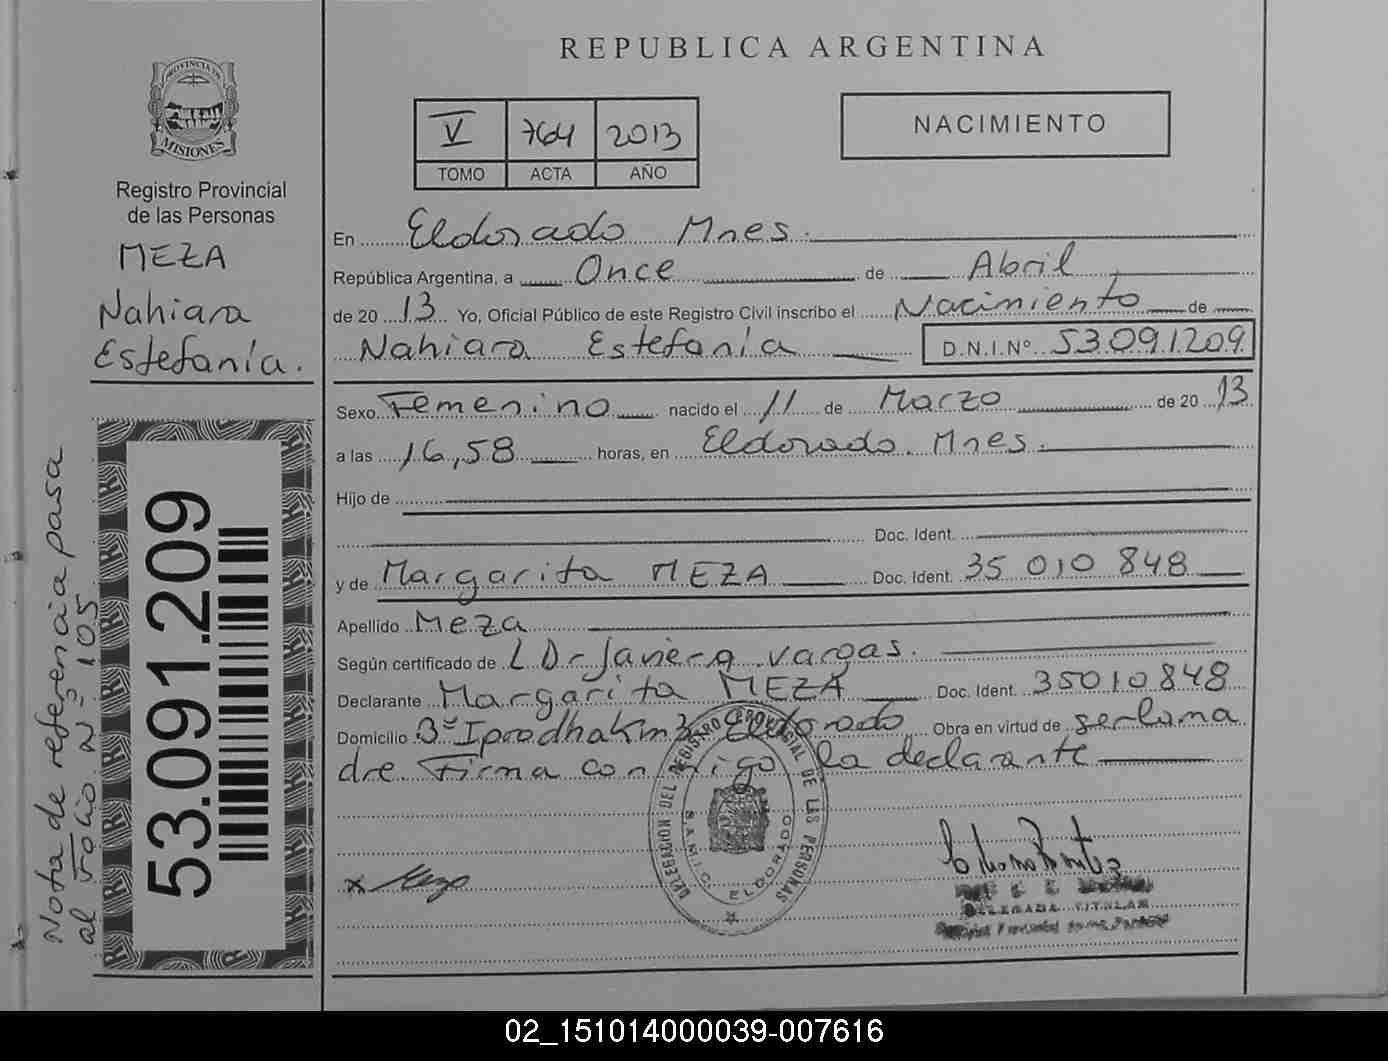 REPUBLICA ARGENTINA
PROVINCIA DE
MISIONES
Registro Provincial
de las Personas
MEZA
Nahiara
Estefanía.
Nota de referencia pasa
al Folio N° 105
53.091.209
V 764 2013
TOMO ACTA AÑO
NACIMIENTO
En Eldorado Mnes.
República Argentina, a Once de Abril
de 2013 Yo, Oficial Público de este Registro Civil inscribo el Nacimiento de
Nahiara Estefanía D.N.I.Nº 53.091.209
Sexo Femenino nacido el 11 de Marzo de 2013
a las 16,58 horas, en Eldorado. Mnes.
Hijo de
Doc. Ident.
y de Margarita MEZA Doc. Ident. 35 010 848
Apellido Meza
Según certificado de LDr Javiera vargas.
Declarante Margarita MEZA Doc. Ident. 35010848
Domicilio Eldorado Obra en virtud de ser la ma
dre. Firma conmigo la declarante
DELEGACION DEL REGISTRO PROVINCIAL DE LAS PERSONAS
ELDORADO
x Meza
DELEGADA TITULAR
02_151014000039-007616